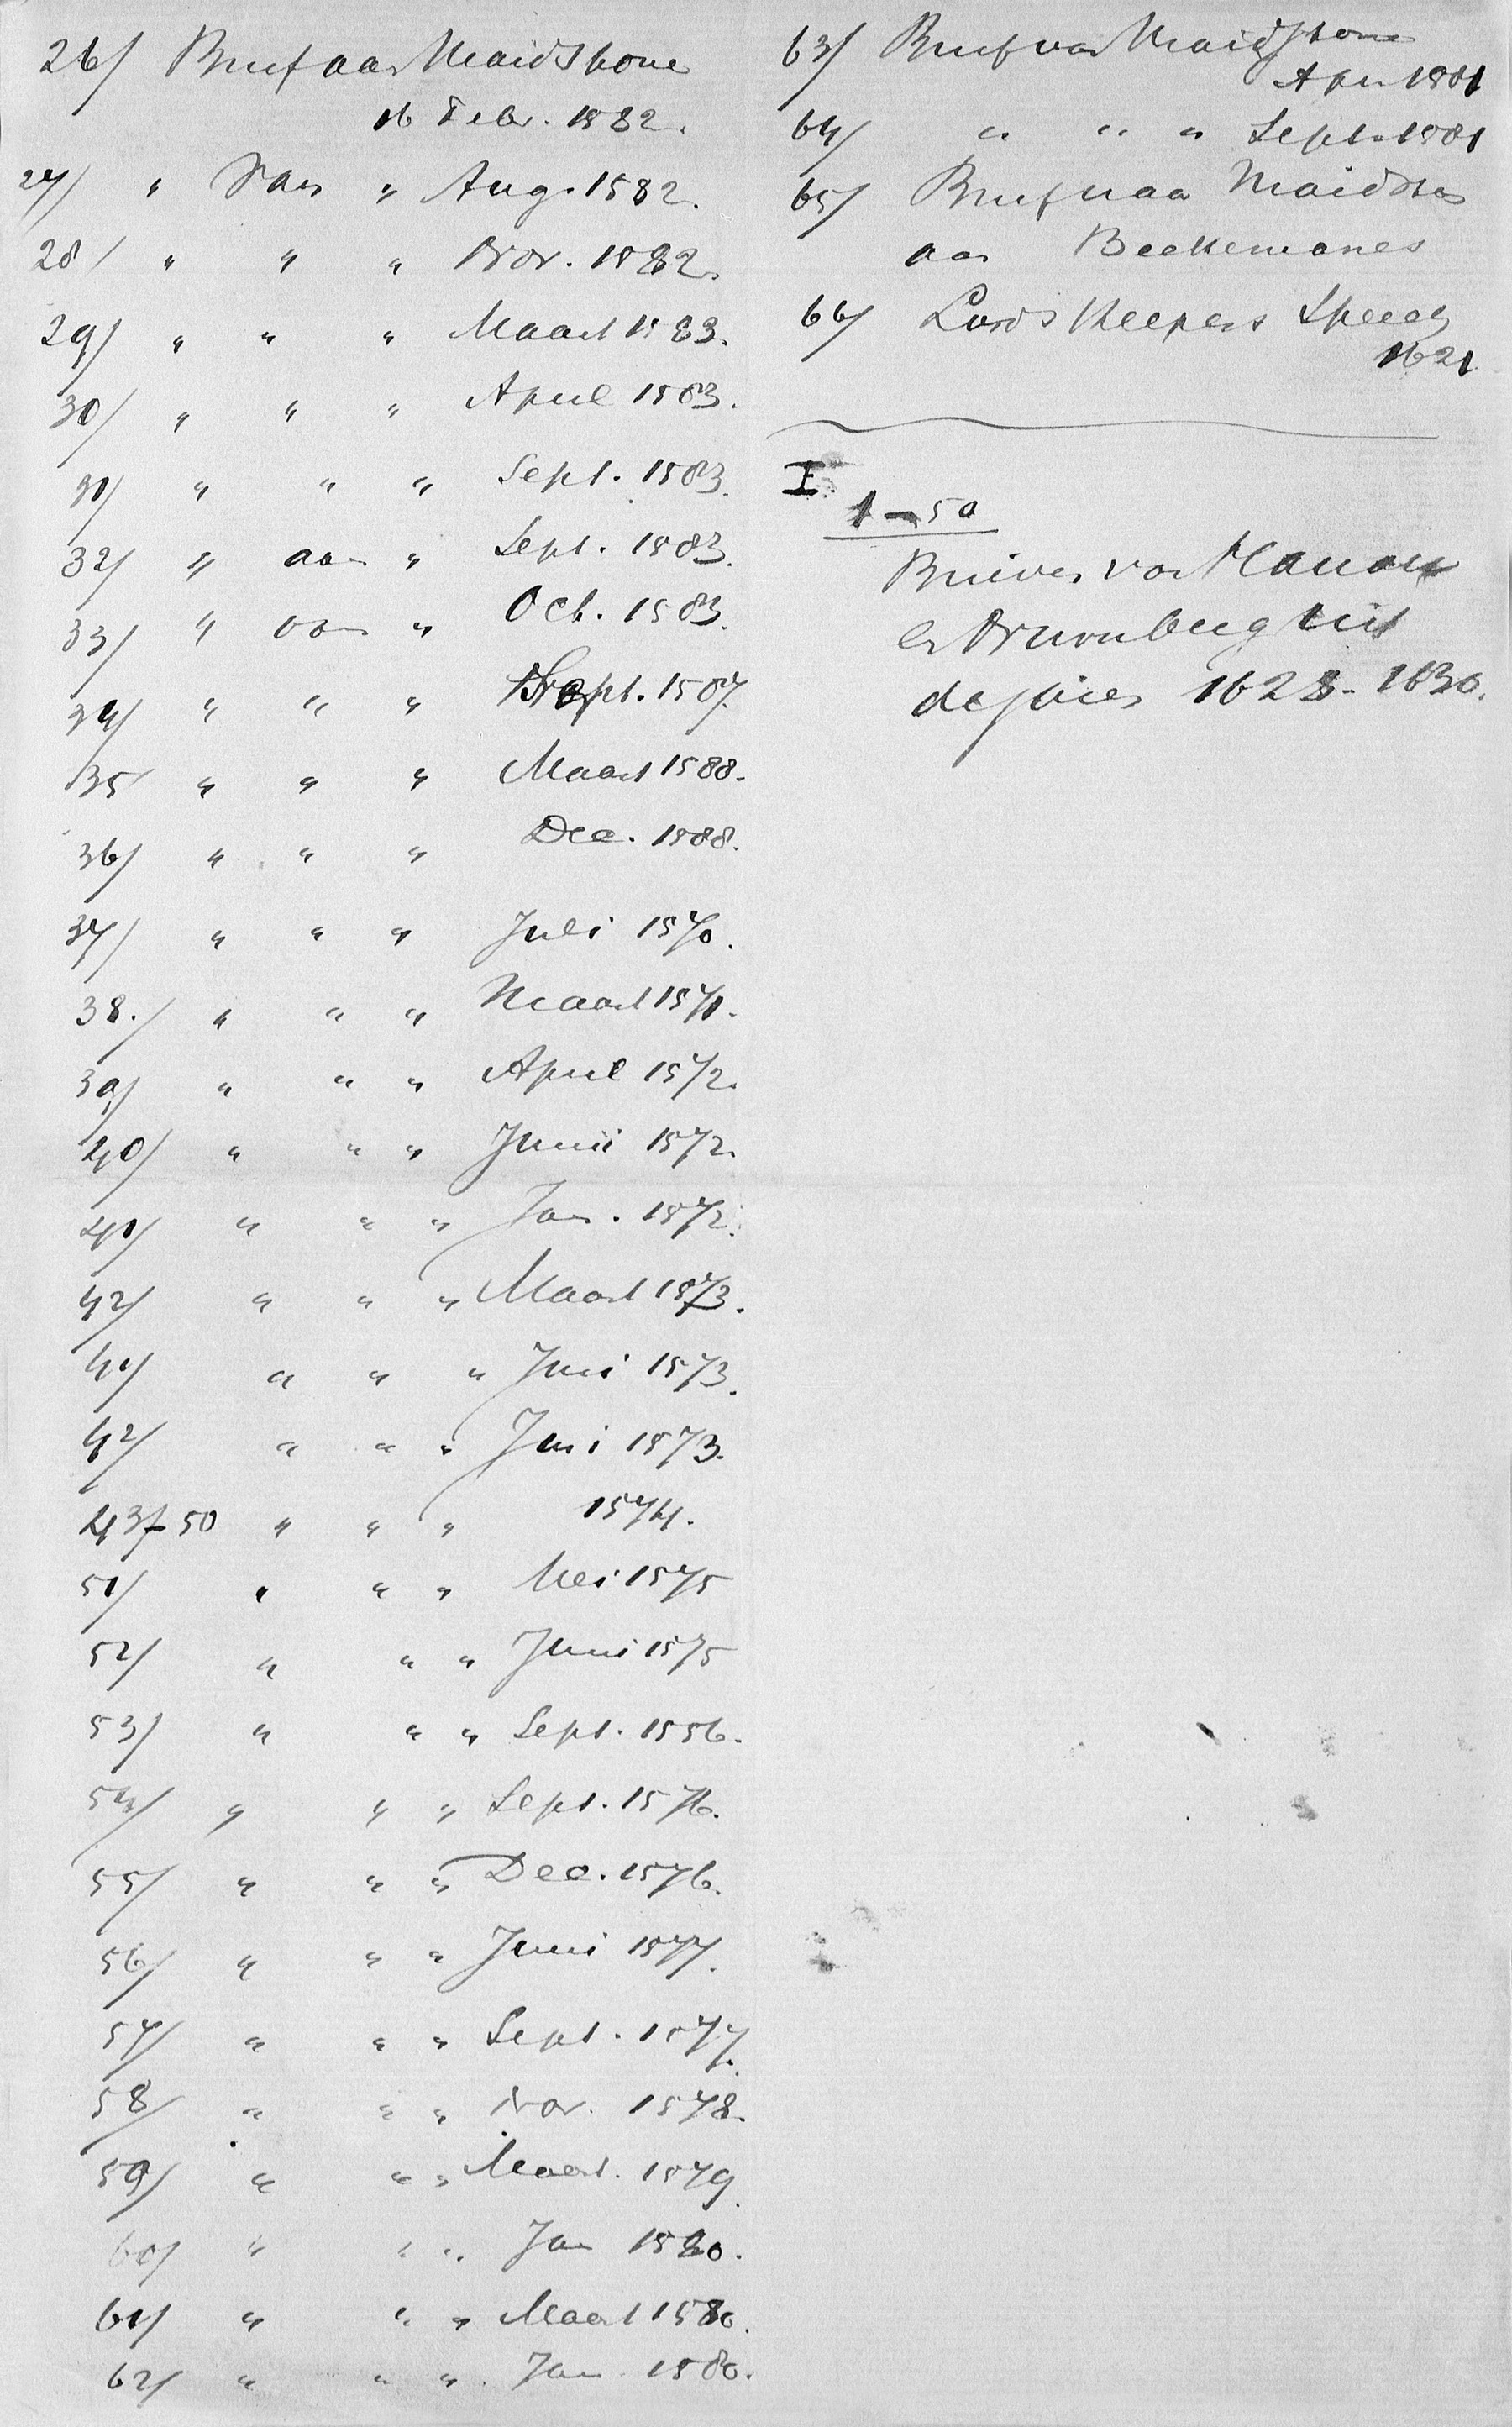 26/ Brief aan Maidstone
16 Febr. 1582.
27/ " Van " Aug. 1582.
28/ " " " Nov. 1582.
29/ " " " Maart 1583.
30/ " " " April 1583.
31/ " " " Sept. 1583.
32/ " aan " Sept. 1583.
33/ " van " Oct. 1583.
34/ " " " Sept. 1587.
35/ " " " Maart 1588.
36/ " " " Dec. 1588.
37/ " " " Juli 1570.
38./ " " " Maart 1571.
39/ " " " April 1572.
40/ " " " Junii 1572.
41/ " " " Jan. 1572.
42/ " " " Maart 1573.
41/ " " " Juni 1573.
42/ " " " Juni 1573.
43/-50 " " " 1574.
51/ " " " Mei 1575
52/ " " " Juni 1575
53/ " " " Sept. 1556.
54/ " " " Sept. 1576.
55/ " " " Dec. 1576.
56/ " " " Juni 1577.
57/ " " " Sept. 1577.
58/ " " " Nov. 1578.
59/ " " " Maart. 1579.
60/ " " " Jan 1580.
61/ " " " Maart 1580.
62/ " " " Jan. 1580.
63/ Brief van Maidstone
Apr. 1581
64/ " " " Sept. 1581
65/ Brief naar Maidstone
aan
66/ Lords Keepers Speech
1621.
I.
1-50
Brieven van Hanau
en Neurenberg uit
de jaren 1628-1630.